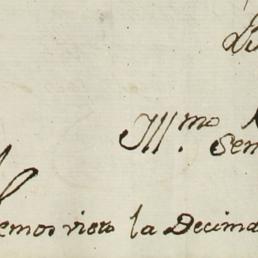 Ill.mo
Sen
emos visto la Decima